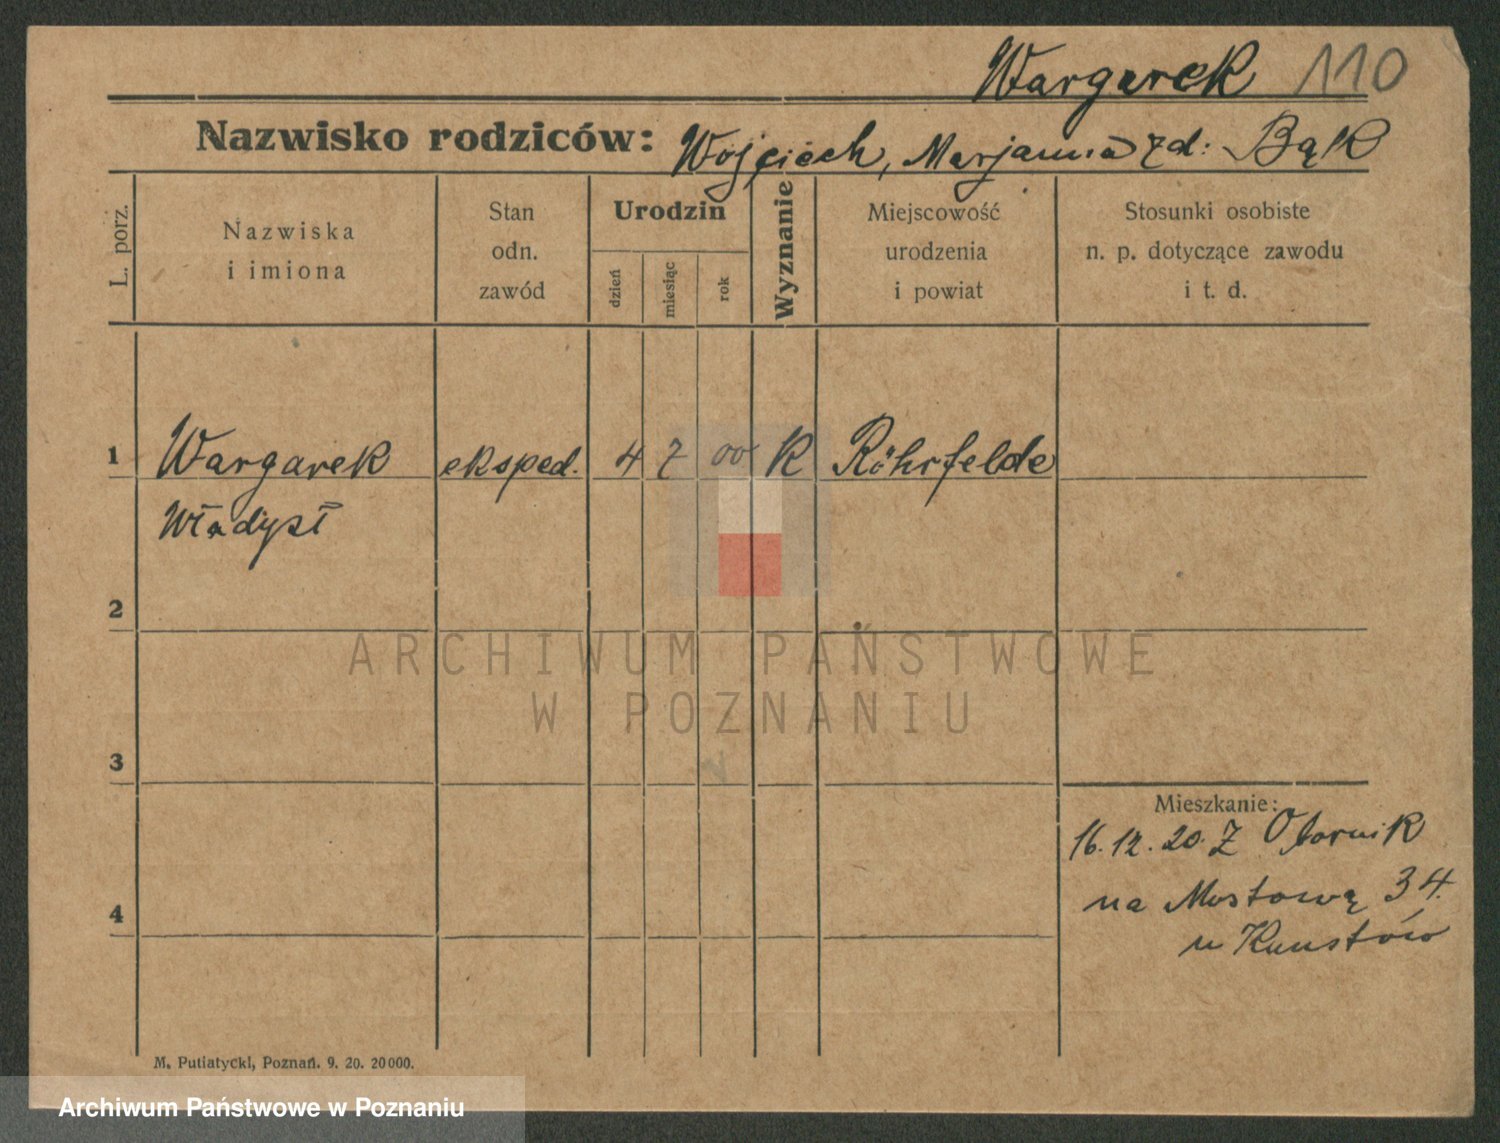 Wargarek 110
Nazwisko rodziców: Wojciech, Marjanna zd: Bąk
L. porz.
Nazwiska
i imiona
Stan
odn.
zawód
Urodzin
dzień
miesiąc
rok
Wyznanie
Miejscowość
urodzenia
i powiat
Stosunki osobiste
n. p. dotyczące zawodu
i t. d.
1 Wargarek eksped. 4 7 00 K Röhrfelde
Władysł
2
ARCHIWUM PAŃSTWOWE
W POZNANIU
3
Mieszkanie:
16.12.20. Z
na Mostową 34.
u Kunstów
4
M. Putiatycki, Poznań. 9. 20. 20000.
Archiwum Państwowe w Poznaniu